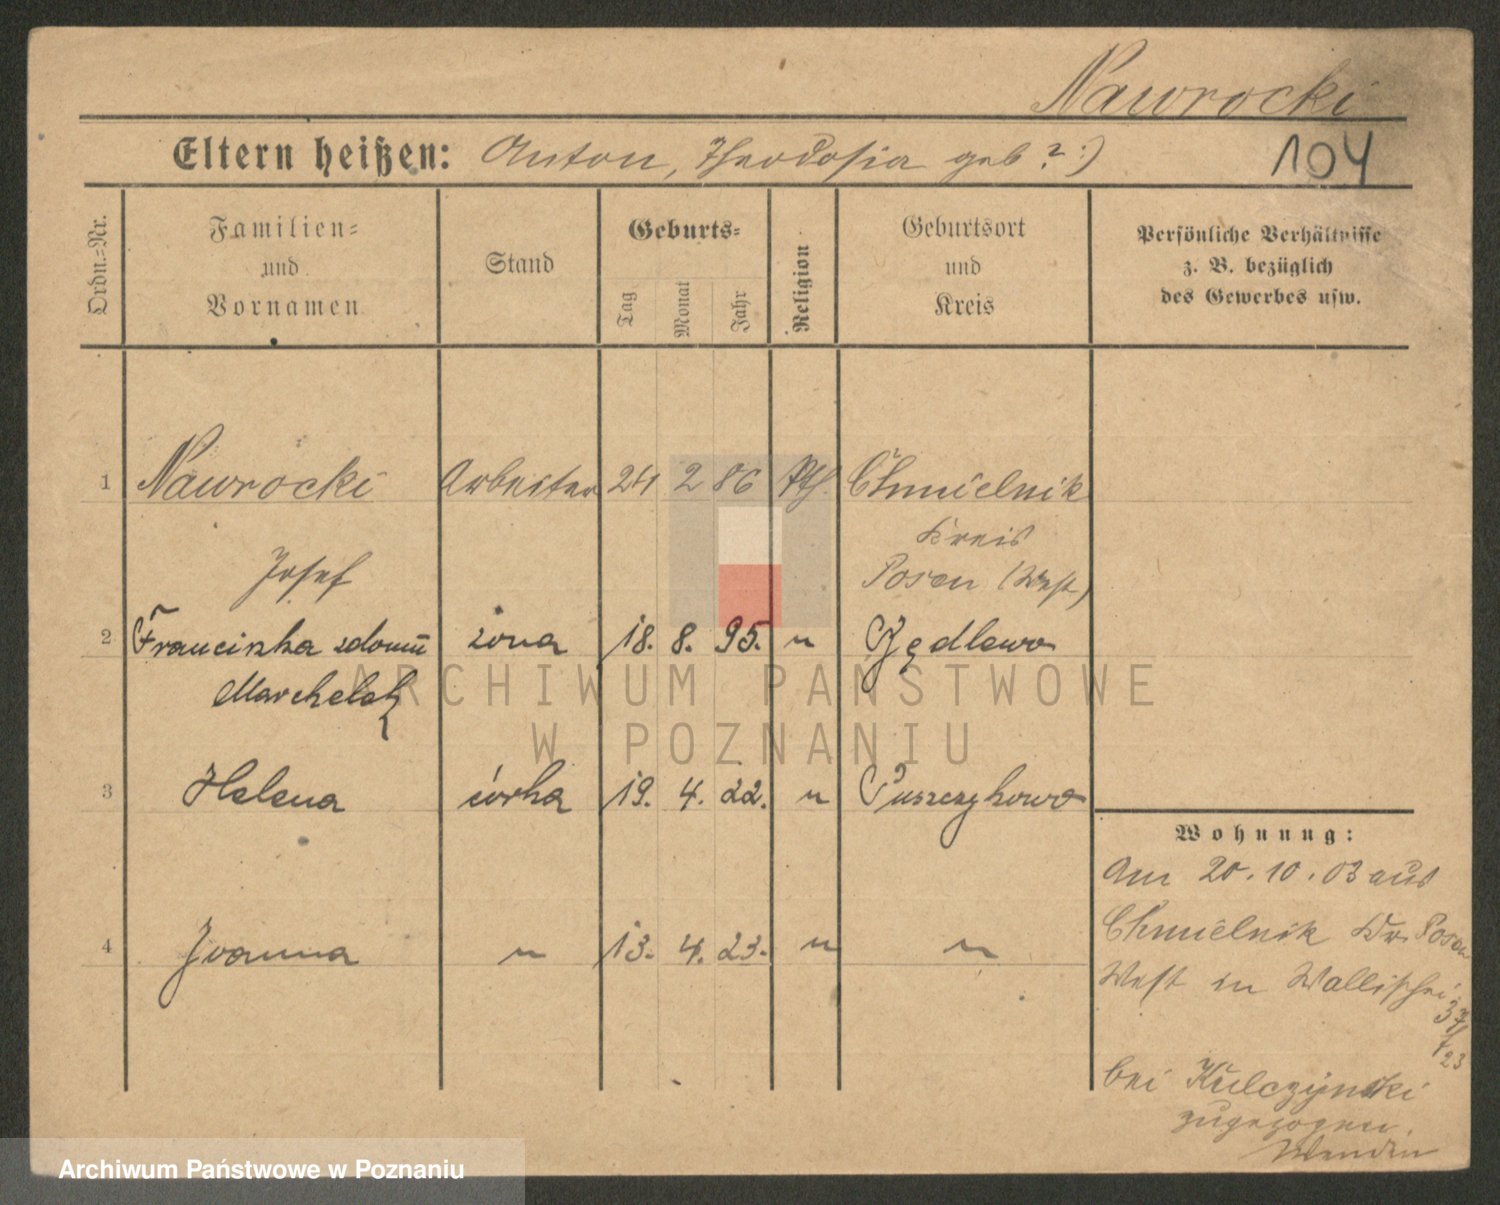 Nawrocki
Eltern heißen: Anton, Theodosia geb ?:)
104
Ordn.-Nr.
Familien-
und
Vornamen
Stand
Geburts-
Tag
Monat
Jahr
Religion
Geburtsort
und
Kreis
Persönliche Verhältnisse
z. B. bezüglich
des Gewerbes usw.
1 Nawrocki Arbeiter 24 2 86 kth. Chmielnik
Josef
Kreis
Posen (West)
2 Franciszka zdomu żona 18. 8. 95. "
Marchelek
3 Helena córka 19. 4. 22. " Puszczykowo
4 Joanna " 13. 4. 23. " "
Wohnung:
Am 20.10.03 aus
Chmielnik Kr. Posen
West in Wallischei
37/
23
bei Kulczynski
zugezogen.
ARCHIWUM PAŃSTWOWE
W POZNANIU
Archiwum Państwowe w Poznaniu